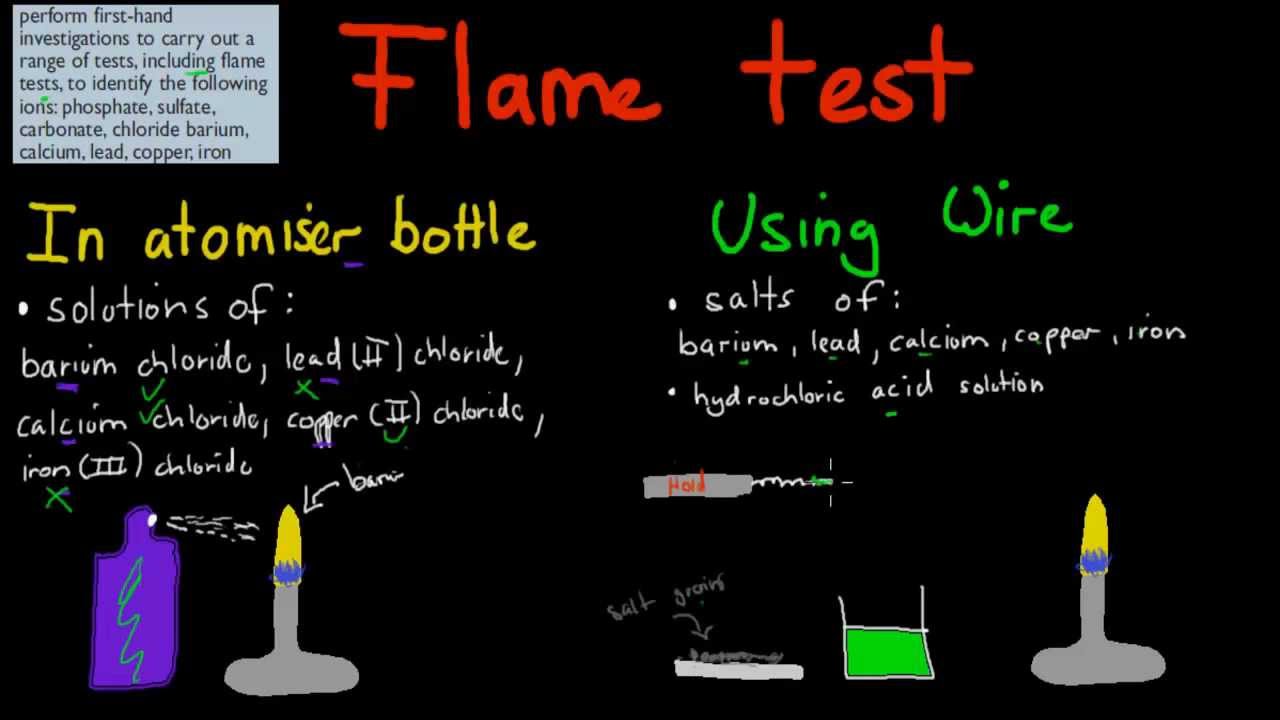 perform first-hand
investigations to carry out a
range of tests, including flame
tests, to identify the following
ions: phosphate, sulfate,
carbonate, chloride barium,
calcium, lead, copper, iron
Flame test
In atomiser bottle
• solutions of:
barium chloride, lead (II) chloride,
calcium chloride, copper (II) chloride,
iron (III) chloride
bari
Using Wire
• salts of:
barium, lead, calcium, copper, iron
• hydrochloric acid solution
Hold
salt grains